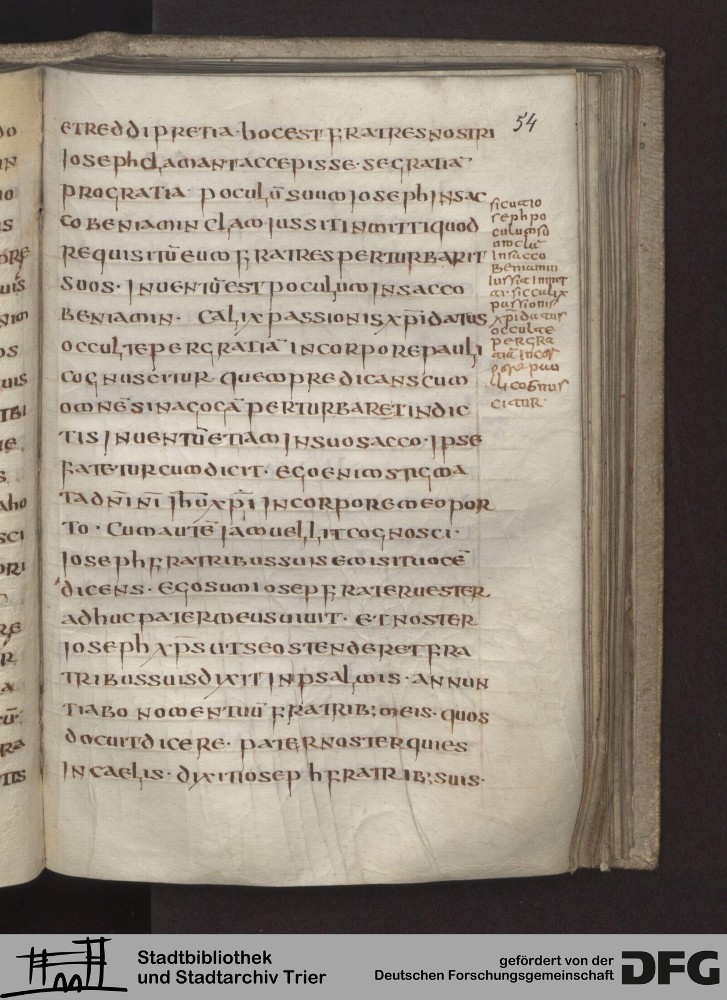 54
et reddi pretia · hoc est fratres nostri
Joseph clamant accepisse · se gratiā
pro gratia · poculū suum joseph in sac
co beniamin clam jussit inmitti quod
requisitū eum fratres perturbarit
suos · inuentū est poculum in sacco
beniamin · calix passionis xp̄i datus
occulte per gratiā in corpore pauli
cognuscitur · quem predicans cum
omnēs sinagogā perturbaret indic
tis inuentū etiam in suo sacco · ipse
fatetur cum dicit · ego enim stigma
ta dn̄i n̄i jh̄u xp̄i in corpore meo por
to · cum autē jam uellit cognosci ·
joseph fratribus suis emisit uocē
dicens · ego sum ioseph frater uester
adhuc pater meus uiuit · et noster
joseph xp̄s ut se ostenderet fra
tribus suis dixit in psalmis · annun
tiabo nomen tuū fratrib; meis · quos
docuit dicere · pater noster qui es
in caelis · dixit ioseph fratrib; suis ·
sicut io
seph po
culum su
um clū
in sacco
beniamin
iussit inmit
ti · sic calix
passionis
xp̄i datus
occulte
per gra
tiā in cor
pore pau
li cognus
citur ·
Stadtbibliothek
und Stadtarchiv Trier
gefördert von der
Deutschen Forschungsgemeinschaft
DFG